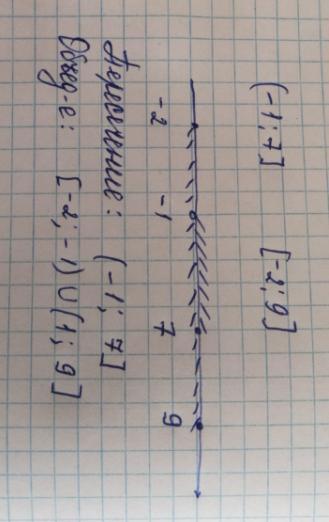 (-1; 7] [-2; 9]
-2 -1 7 9
Пересечение: (-1; 7]
Объед-е: [-2; -1) ∪ (1; 9]